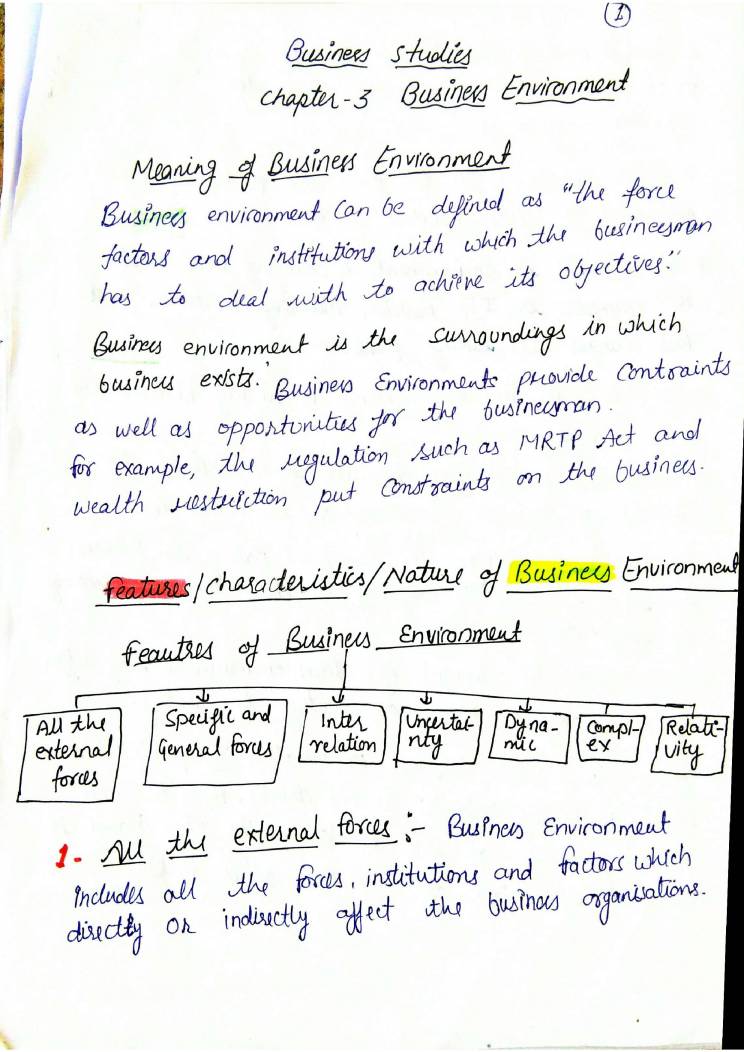 1
Business Studies
Chapter-3 Business Environment
Meaning of Business Environment
Business environment can be defined as "the force
factors and institutions with which the businessman
has to deal with to achieve its objectives."
Business environment is the surroundings in which
business exists. Business Environments provide Contraints
as well as opportunities for the businessman.
for example, the regulation such as MRTP Act and
wealth restriction put constraints on the business.
Features/Characteristics/Nature of Business Environment
Feautres of Business Environment
All the external forces
Specific and General forces
Inter relation
Uncertai-nty
Dyna-mic
Compl-ex
Relati-vity
1- All the external forces :- Business Environment
includes all the forces, institutions and factors which
directly or indirectly affect the business organisations.